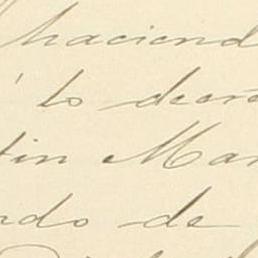 haciend
lo decre
tin Mar
ado de